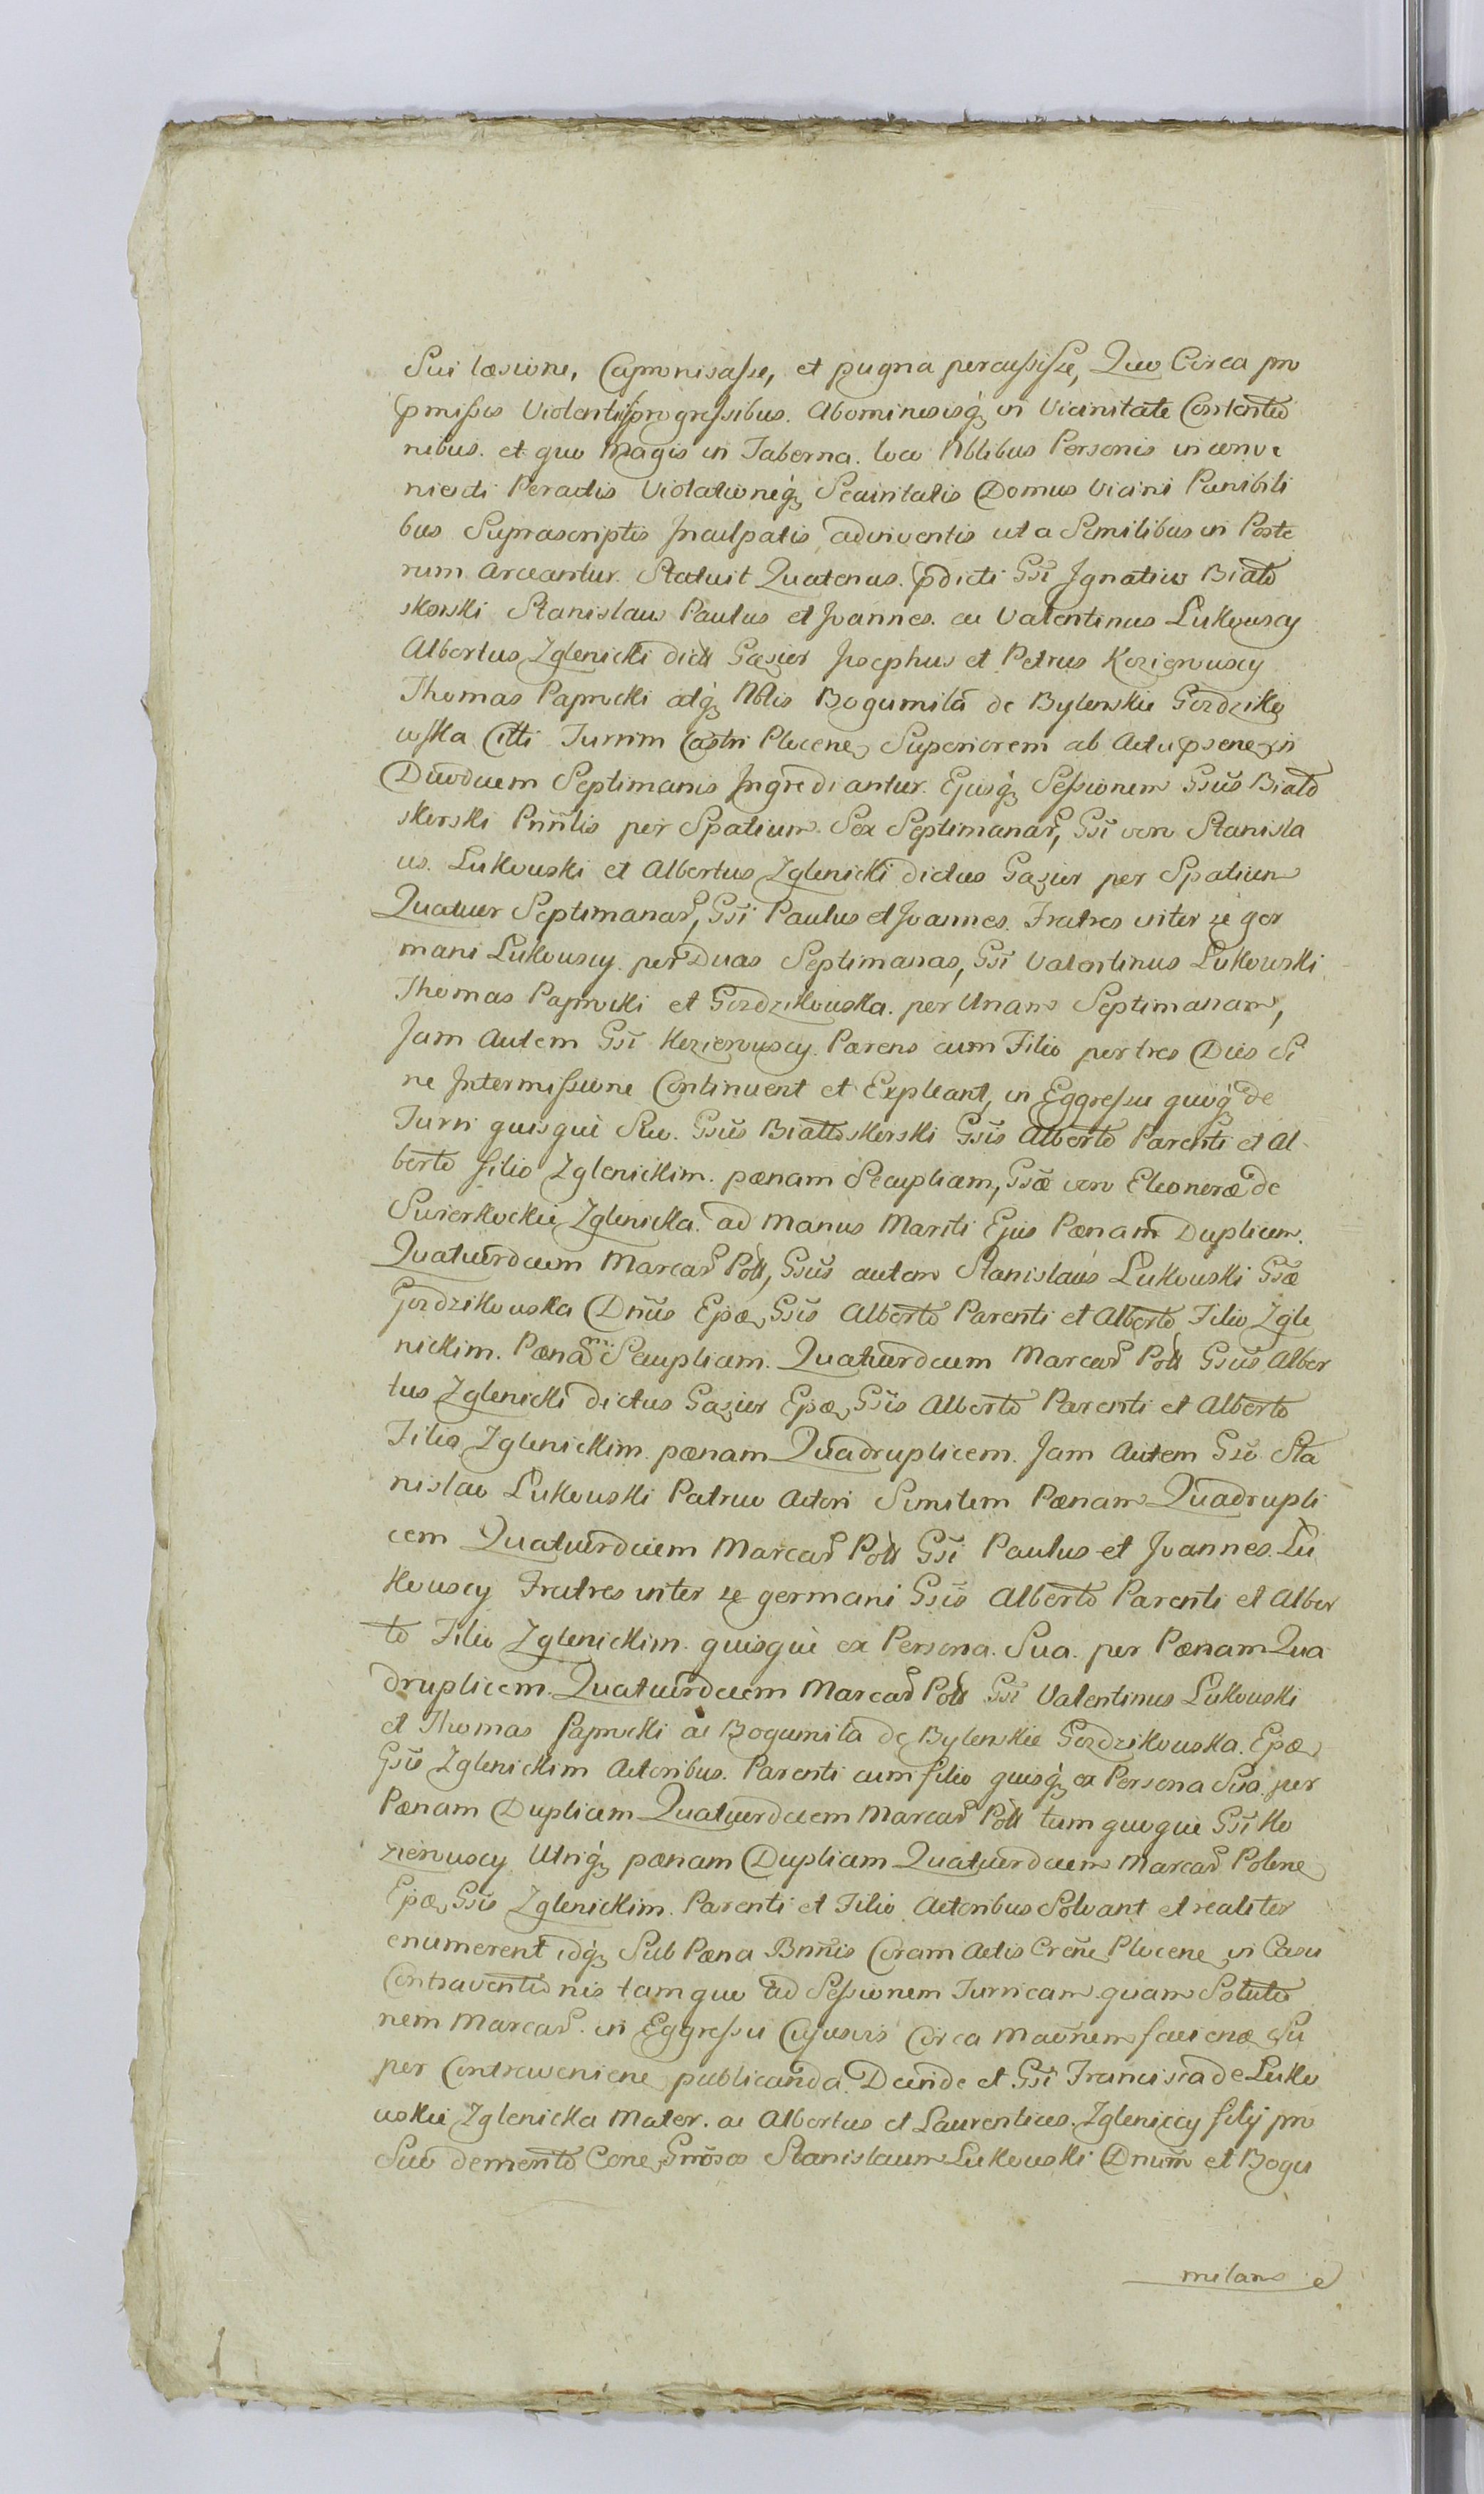 Sui læsione, Capronisasse, et pugna percussisse, Quo Circa pro
pmissis Violentijs progressibus. Abominosisq̃ in Vicinitate Contentio
nibus. et quo Magis in Taberna. loco Nblibus Personis inconve
nienti Peractis Violationeq̃ Securitatis Domus Vicini Punibili
bus Suprascriptis Inculpatis adinventis ut a Similibus in Poste
rum Arceantur. Statuit Quatenus. pdicti Gsi Ignatius Biało
skorski Stanislaus Paulus et Joannes. ac Valentinus Lukowscy
Albertus Zglenicki dict Gazier Josephus et Petrus Kozierowscy
Thomas Paprocki atq̃ Nblis Bogumila de Bylenskie Gozdziko
wska Citti Turrim Castri Plocene Superiorem ab Actu psene in
Duodecem Septimanis Ingrediantur. Ejusq̃ Sessionem Gsus Biało
skorski Prinlis per Spatium. Sex Septimanar, Gsi vero Stanisla
us. Lukowski et Albertus Zglenicki dictus Gazier per Spatium
Quatuor Septimanar, Gsi Paulus et Joannes. Fratres inter se ger
mani Lukowscy per Duas Septimanas, Gsi Valentinus Lukowski
Thomas Paprocki et Gozdzikowska. per Unam Septimanam,
Jam Autem Gsi Kozierowscy. Parens cum Filio per tres Dies Si
ne Intermissione Continuent et Expleant, in Eggressu quoq̃ de
Turri quisque Suo. Gsus Białłoskorski Gsis Alberto Parenti et Al
berto filio Zglenickim. pœnam Secuplicem, Gsæ vero Eleonoræ de
Suierkockie Zglenicka. ad Manus Mariti Ejus Pœnam Duplicem.
Quatuordecem Marcar Poll, Gsus autem Stanislaus Lukowski Gsæ
Gozdzikowska Dnus Epæ Gsis Alberto Parenti et Alberto Filio Zgle
nickim. Pœnam Secuplicem. Quatuordecem Marcar Poll Gsus Alber
tus Zglenicki dictus Gazier Epæ Gsis Alberto Parenti et Alberto
Filio Zglenickim. pœnam Quadruplicem. Jam Autem Gso Sta
nislao Lukowski Patruo Actori Similem Pœnam Quadrupli
cem Quatuordecem Marcar Poll Gsi Paulus et Joannes. Lu
kowscy Fratres inter se germani Gsis Alberto Parenti et Alber
to Filio Zglenickim. quisque ex Persona. Sua. per Pœnam Qua
druplicem. Quatuordecem Marcar Poll Gsi Valentinus Lukowski
et Thomas Paprocki ac Bogumila de Bylenskie Gozdzikowska. Epæ
Gsis Zglenickim Actoribus. Parenti cum filio quisq̃ ex Persona Sua per
Pœnam Duplicem Quatuordecem Marcar Poll tum quoque Gsi Ko
zierowscy Utriq̃ pœnam Duplicem Quatuordecem Marcar Polone
Epæ Gsis Zglenickim. Parenti et Filio Actoribus Solvant et realiter
enumerent idq̃ Sub Pœna Bnnis Coram Actis Crene Plocene in Casu
Contraventionis tam quo ad Sessionem Turricam quam Solutio
nem Marcar. in Eggressu Cujusvis Circa Maonem facienæ Su
per Contraveniene publicanda. Deinde et Gsi Francisca de Luko
wskie Zglenicka Mater. ac Albertus et Laurentius. Zgleniccy filij pro
Suo demerito Cone Gnrosos Stanislaum Lukowski Dnum et Bogu
milam